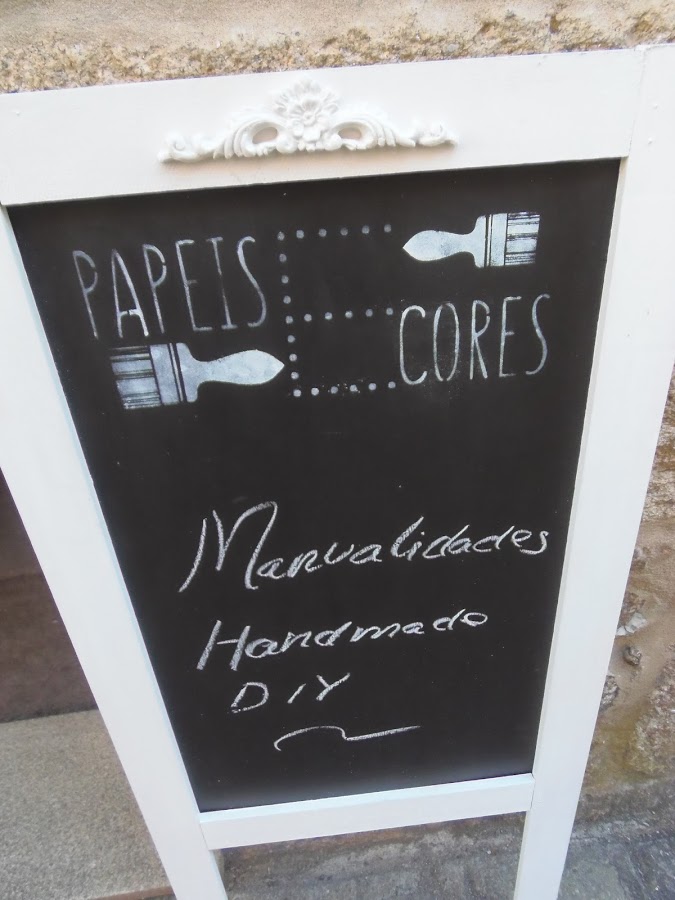 PAPEIS
CORES
Manualidades
Handmade
DIY